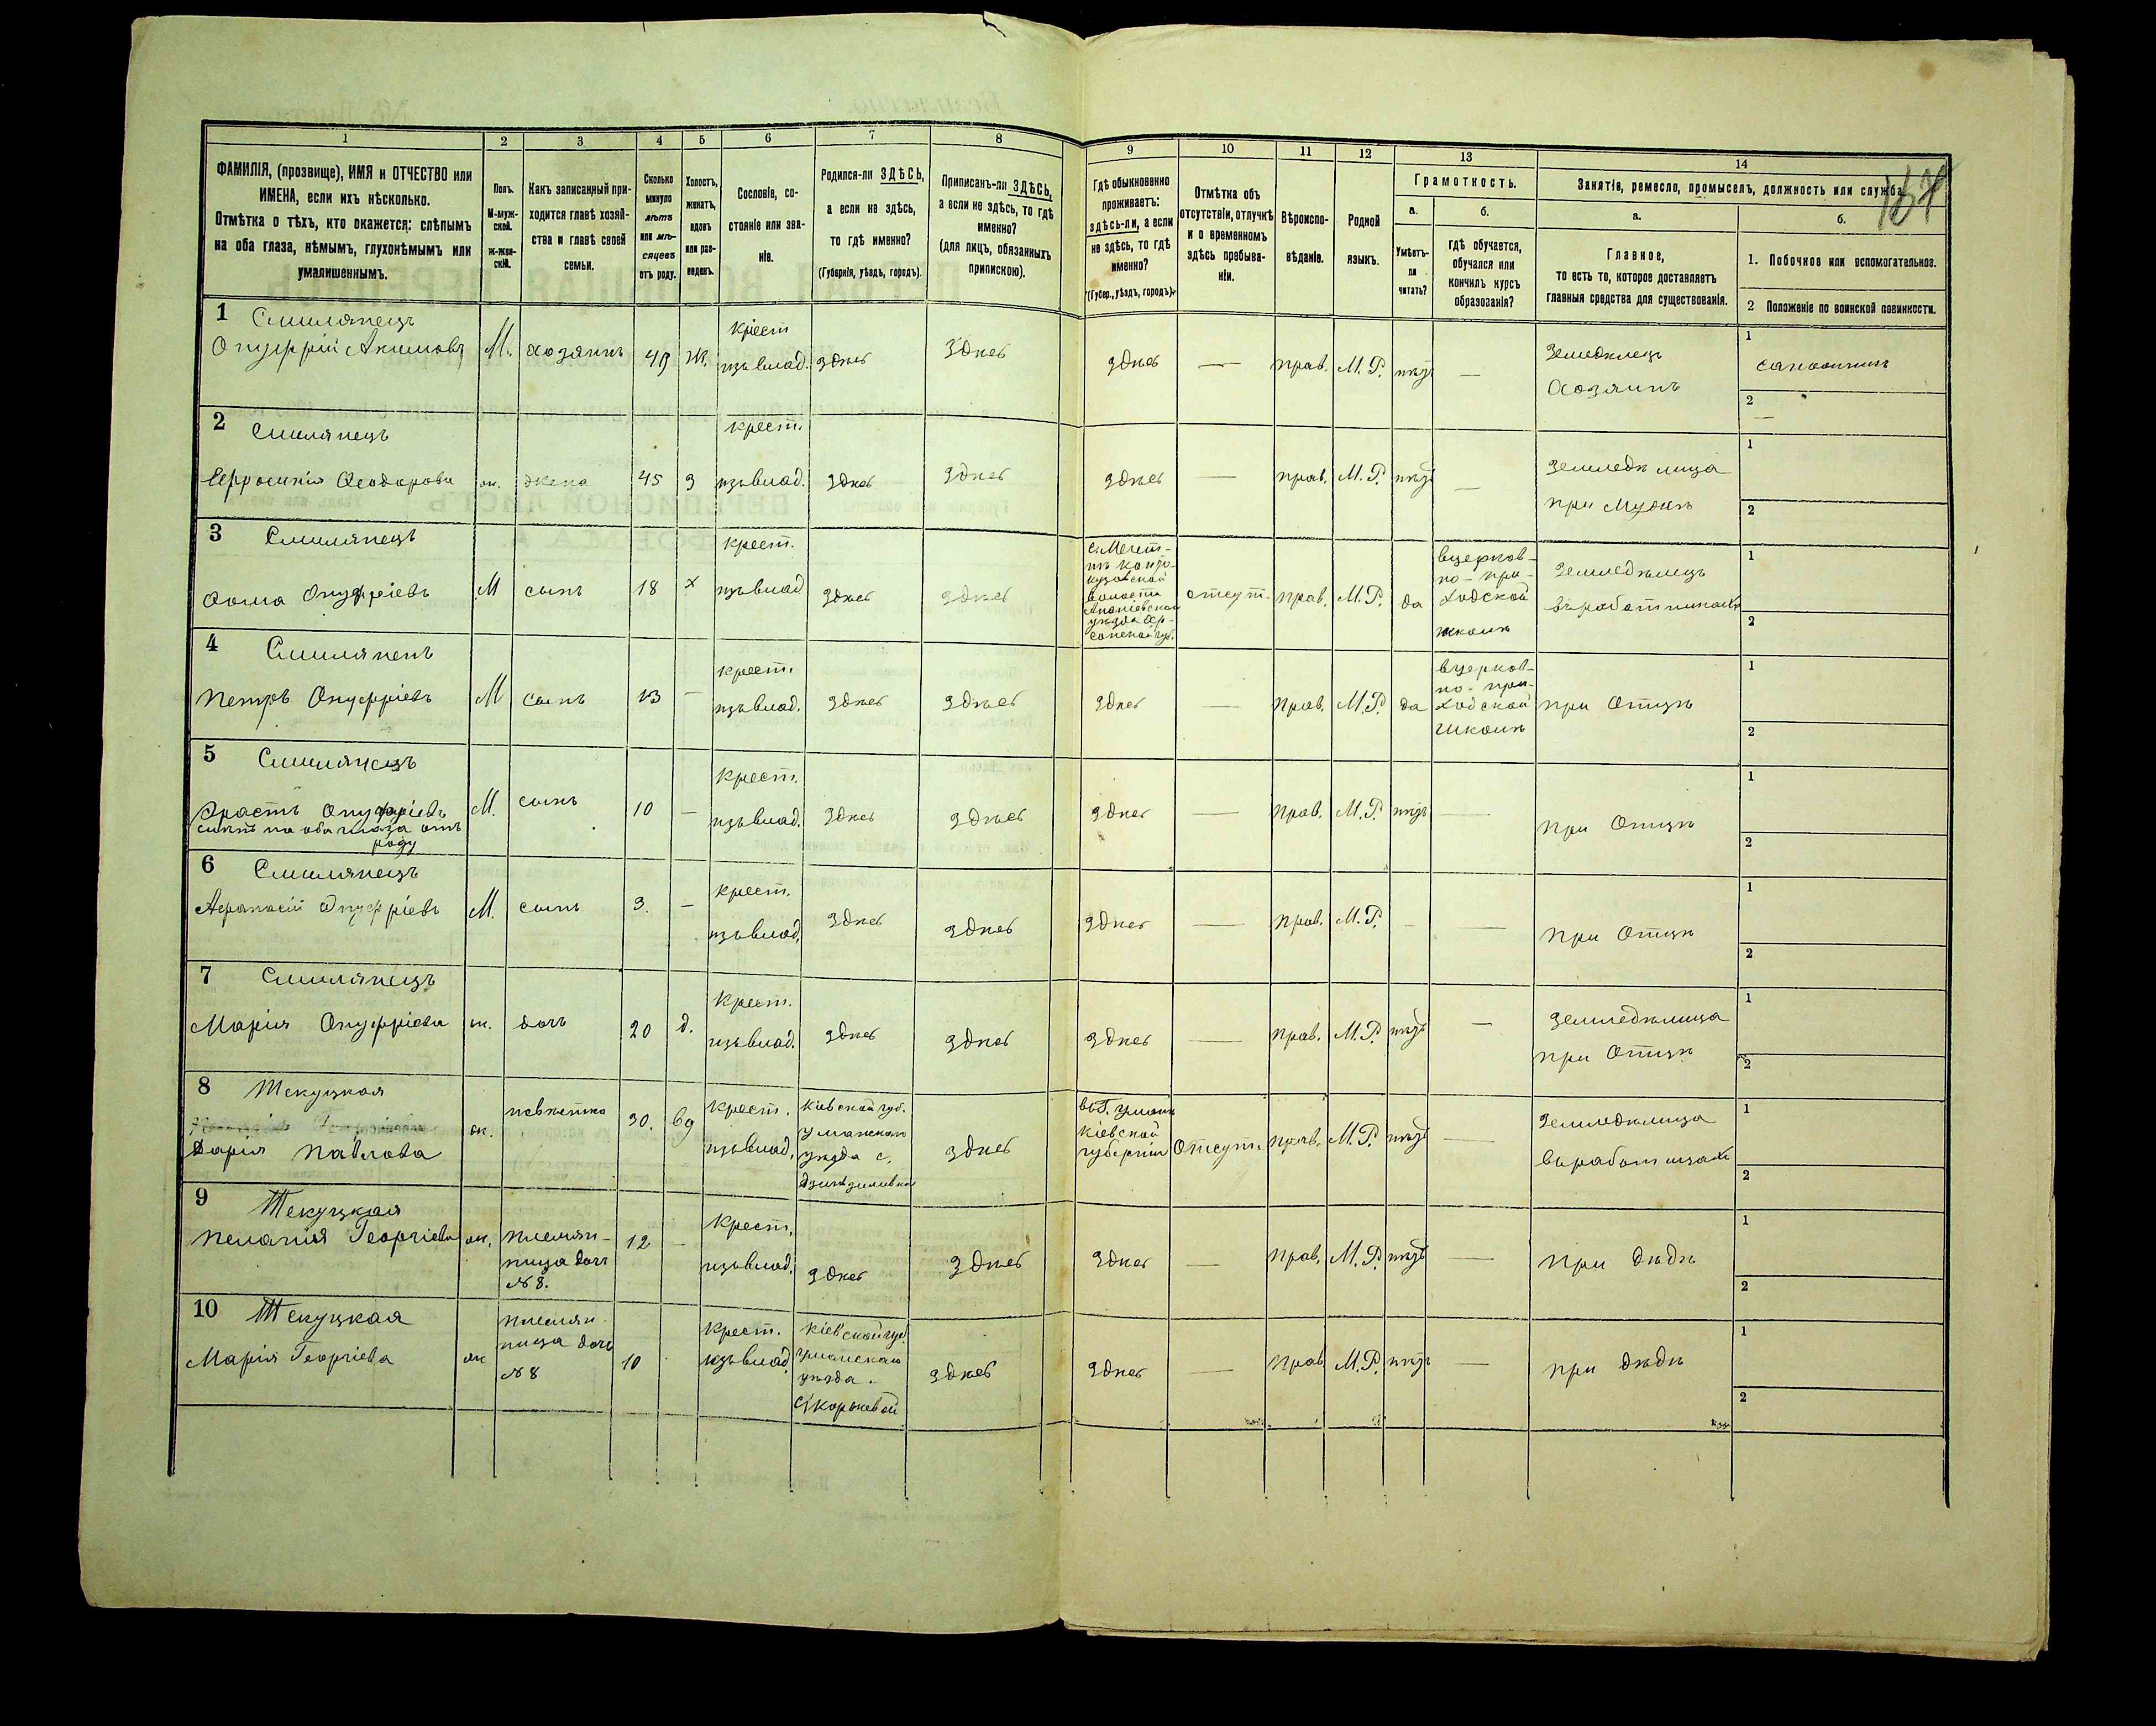 187
1 2 3 4 5 6 7 8 9 10 11 12 13 14
ФАМИЛІЯ, (прозвище), ИМЯ и ОТЧЕСТВО или
ИМЕНА, если ихъ нѣсколько.
Отмѣтка о тѣхъ, кто окажется: слѣпымъ
на оба глаза, нѣмымъ, глухонѣмымъ или
умалишеннымъ.
Полъ.
М-муж-
ской.
ж-жен-
скій.
Какъ записанный при-
ходится главѣ хозяй-
ства и главѣ своей
семьи.
Сколько
минуло
лѣтъ
или мѣ-
сяцевъ
отъ роду.
Холостъ,
женатъ,
вдовъ
или раз-
веденъ.
Сословіе, со-
стояніе или зва-
ніе.
Родился-ли ЗДѢСЬ,
а если не здѣсь,
то гдѣ именно?
(Губернія, уѣздъ, городъ).
Приписанъ-ли ЗДѢСЬ,
а если не здѣсь, то гдѣ
именно?
(для лицъ, обязанныхъ
припискою).
Гдѣ обыкновенно
проживаетъ:
здѣсь-ли, а если
не здѣсь, то гдѣ
именно?
(Губер., уѣздъ, городъ).
Отмѣтка объ
отсутствіи, отлучкѣ
и о временномъ
здѣсь пребыва-
ніи.
Вѣроиспо-
вѣданіе.
Родной
языкъ.
Грамотность.
а.
Умѣетъ-
ли
читать?
б.
гдѣ обучается,
обучался или
кончилъ курсъ
образованія?
Занятіе, ремесло, промыселъ, должность или служба.
а.
Главное,
то есть то, которое доставляетъ
главныя средства для существованія.
б.
1. Побочное или вспомогательное.
2 Положеніе по воинской повинности.
1 Смилянецъ
Онуффрій Акимовъ М. хозяинъ 49 Ж. крест изъ влад. здѣсь здѣсь здѣсь — прав. М. Р. нѣтъ —
Земледѣлецъ
Хозяинъ
1 сапожникъ
2 —
2 Смилянецъ
Ефросинія Ѳеодорова ж. жена 45 З крест. изъ влад. здѣсь здѣсь здѣсь — прав. М. Р. нѣтъ —
Земледѣлица
при Мужѣ
1
2
3 Смилянецъ
Ѳома Онуфріевъ М сынъ 18 х крест. изъ влад здѣсь здѣсь
волости
Ананіевскаго
уѣзда Хер-
сонской губ.
отсут. прав. М. Р. да
в церков-
но-при-
ходской
школѣ
Земледѣлецъ
въ работникахъ
1
2
4 Смилянецъ
Петръ Онуффріевъ М сынъ 13 — крест. изъ влад. здѣсь здѣсь здѣсь — прав. М. Р. да
в церков-
но-при-
ходской
школѣ
при Отцѣ
1
2
5 Смилянецъ
Эрастъ Онуфріевъ
слѣпъ на оба глаза отъ
роду
М. сынъ 10 — крест. изъ влад. здѣсь здѣсь здѣсь — прав. М. Р. нѣтъ —
при Отцѣ
1
2
6 Смилянецъ
Афанасій Онуффріевъ М. сынъ 3. — крест. изъ влад. здѣсь здѣсь здѣсь — прав. М. Р. - —
при Отцѣ
1
2
7 Смилянецъ
Марія Онуффріева ж. дочь 20 д. крест. изъ влад. здѣсь здѣсь здѣсь — прав. М. Р. нѣтъ —
Земледѣлица
при Отцѣ
1
2
8 Текуцкая
Дарія Павлова ж. невѣстка 30. вд крест. изъ влад.
Кіевской губ.
Уманскаго
уѣзда с.
здѣсь
въ Г. Умани
Кіевской
губерніи
Отсут. прав. М. Р. нѣтъ —
Земледѣлица
въ работницахъ
1
2
9 Текуцкая
Пелагія Георгіева ж.
племян-
ница дочь
№ 8.
12 — крест. изъ влад. здѣсь здѣсь здѣсь — прав. М. Р. нѣтъ —
при дѣдѣ
1
2
10 Текуцкая
Марія Георгіева ж
племян-
ница дочь
№ 8
10 крест. изъ влад.
Кіевской губ.
Уманскаго
уѣзда.
здѣсь здѣсь — прав М. Р. нѣтъ —
при дѣдѣ
1
2